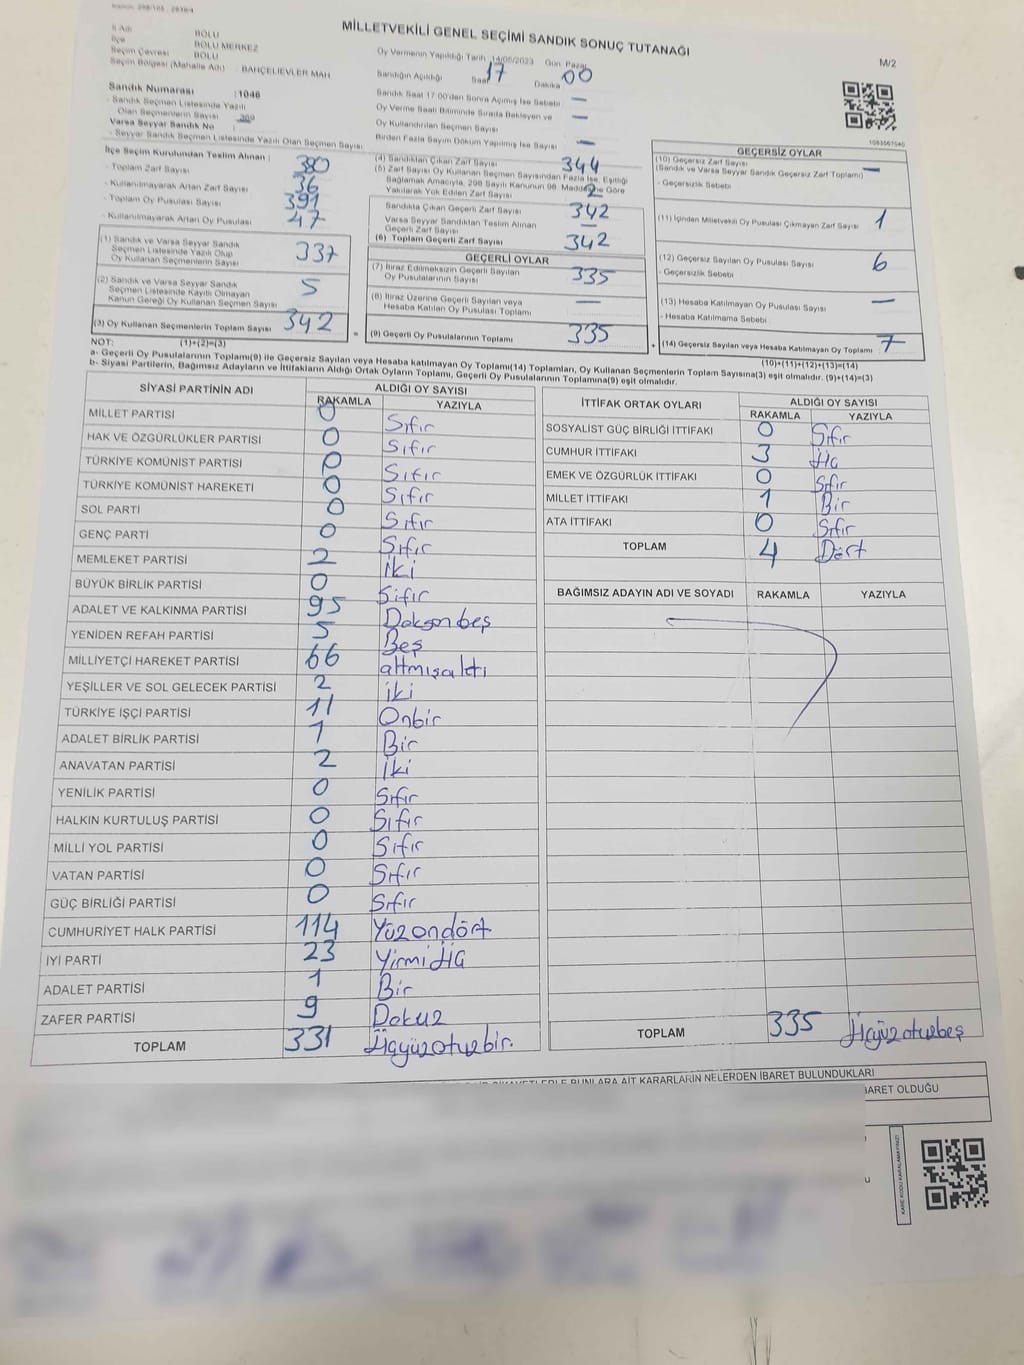 MİLLETVEKİLİ GENEL SEÇİMİ SANDIK SONUÇ TUTANAĞI
M/2
İl Adı BOLU
İlçe BOLU MERKEZ
Seçim Çevresi BOLU
Seçim Bölgesi (Mahalle Adı) : BAHÇELİEVLER MAH
Sandık Numarası : 1046
- Sandık Seçmen Listesinde Yazılı
Olan Seçmenlerin Sayısı
Varsa Seyyar Sandık No
- Seyyar Sandık Seçmen Listesinde Yazılı Olan Seçmen Sayısı
Oy Vermenin Yapıldığı Tarih : 14/05/2023 Gün Pazar
Sandığın Açıldığı Saat 17 Dakika 00
Sandık Saat 17:00'den Sonra Açılmış İse Sebebi —
Oy Verme Saati Bitiminde Sırada Bekleyen ve
Oy Kullandırılan Seçmen Sayısı —
Birden Fazla Sayım Döküm Yapılmış İse Sayısı —
İlçe Seçim Kurulundan Teslim Alınan :
- Toplam Zarf Sayısı 380
- Kullanılmayarak Artan Zarf Sayısı 36
- Toplam Oy Pusulası Sayısı 391
- Kullanılmayarak Artan Oy Pusulası 47
(1) Sandık ve Varsa Seyyar Sandık
Seçmen Listesinde Yazılı Olup
Oy Kullanan Seçmenlerin Sayısı 337
(2) Sandık ve Varsa Seyyar Sandık
Seçmen Listesinde Kayıtlı Olmayan
Kanun Gereği Oy Kullanan Seçmen Sayısı 5
(3) Oy Kullanan Seçmenlerin Toplam Sayısı 342
(4) Sandıktan Çıkan Zarf Sayısı 344
(5) Zarf Sayısı Oy Kullanan Seçmen Sayısından Fazla İse, Eşitliği
Sağlamak Amacıyla, 298 Sayılı Kanunun 98. Maddesine Göre
Yakılarak Yok Edilen Zarf Sayısı 2
Sandıkta Çıkan Geçerli Zarf Sayısı 342
Varsa Seyyar Sandıktan Teslim Alınan
Geçerli Zarf Sayısı —
(6) Toplam Geçerli Zarf Sayısı 342
GEÇERLİ OYLAR
(7) İtiraz Edilmeksizin Geçerli Sayılan
Oy Pusulalarının Sayısı 335
(8) İtiraz Üzerine Geçerli Sayılan veya
Hesaba Katılan Oy Pusulası Toplamı —
(9) Geçerli Oy Pusulalarının Toplamı 335
GEÇERSİZ OYLAR
(10) Geçersiz Zarf Sayısı
(Sandık ve Varsa Seyyar Sandık Geçersiz Zarf Toplamı) —
- Geçersizlik Sebebi
(11) İçinden Milletvekili Oy Pusulası Çıkmayan Zarf Sayısı 1
(12) Geçersiz Sayılan Oy Pusulası Sayısı 6
- Geçersizlik Sebebi
(13) Hesaba Katılmayan Oy Pusulası Sayısı —
- Hesaba Katılmama Sebebi
(14) Geçersiz Sayılan veya Hesaba Katılmayan Oy Toplamı 7
NOT: (1)+(2)=(3)
(10)+(11)+(12)+(13)=(14)
a- Geçerli Oy Pusulalarının Toplamı(9) ile Geçersiz Sayılan veya Hesaba katılmayan Oy Toplamı(14) Toplamları, Oy Kullanan Seçmenlerin Toplam Sayısına(3) eşit olmalıdır. (9)+(14)=(3)
b- Siyasi Partilerin, Bağımsız Adayların ve İttifakların Aldığı Ortak Oyların Toplamı, Geçerli Oy Pusulalarının Toplamına(9) eşit olmalıdır.
SİYASİ PARTİNİN ADI ALDIĞI OY SAYISI
RAKAMLA YAZIYLA
MİLLET PARTİSİ 0 Sıfır
HAK VE ÖZGÜRLÜKLER PARTİSİ 0 Sıfır
TÜRKİYE KOMÜNİST PARTİSİ 0 Sıfır
TÜRKİYE KOMÜNİST HAREKETİ 0 Sıfır
SOL PARTİ 0 Sıfır
GENÇ PARTİ 0 Sıfır
MEMLEKET PARTİSİ 2 İki
BÜYÜK BİRLİK PARTİSİ 0 Sıfır
ADALET VE KALKINMA PARTİSİ 95 Doksanbeş
YENİDEN REFAH PARTİSİ 5 Beş
MİLLİYETÇİ HAREKET PARTİSİ 66 altmışaltı
YEŞİLLER VE SOL GELECEK PARTİSİ 2 iki
TÜRKİYE İŞÇİ PARTİSİ 11 Onbir
ADALET BİRLİK PARTİSİ 1 Bir
ANAVATAN PARTİSİ 2 İki
YENİLİK PARTİSİ 0 Sıfır
HALKIN KURTULUŞ PARTİSİ 0 Sıfır
MİLLİ YOL PARTİSİ 0 Sıfır
VATAN PARTİSİ 0 Sıfır
GÜÇ BİRLİĞİ PARTİSİ 0 Sıfır
CUMHURİYET HALK PARTİSİ 114 Yüzondört
İYİ PARTİ 23 Yirmi üç
ADALET PARTİSİ 1 Bir
ZAFER PARTİSİ 9 Dokuz
TOPLAM 331 Üçyüzotuzbir.
İTTİFAK ORTAK OYLARI ALDIĞI OY SAYISI
RAKAMLA YAZIYLA
SOSYALİST GÜÇ BİRLİĞİ İTTİFAKI 0 Sıfır
CUMHUR İTTİFAKI 3 üç
EMEK VE ÖZGÜRLÜK İTTİFAKI 0 Sıfır
MİLLET İTTİFAKI 1 Bir
ATA İTTİFAKI 0 Sıfır
TOPLAM 4 Dört
BAĞIMSIZ ADAYIN ADI VE SOYADI RAKAMLA YAZIYLA
TOPLAM 335 Üçyüzotuzbeş
BUNLARA AİT KARARLARIN NELERDEN İBARET BULUNDUKLARI
İBARET OLDUĞU